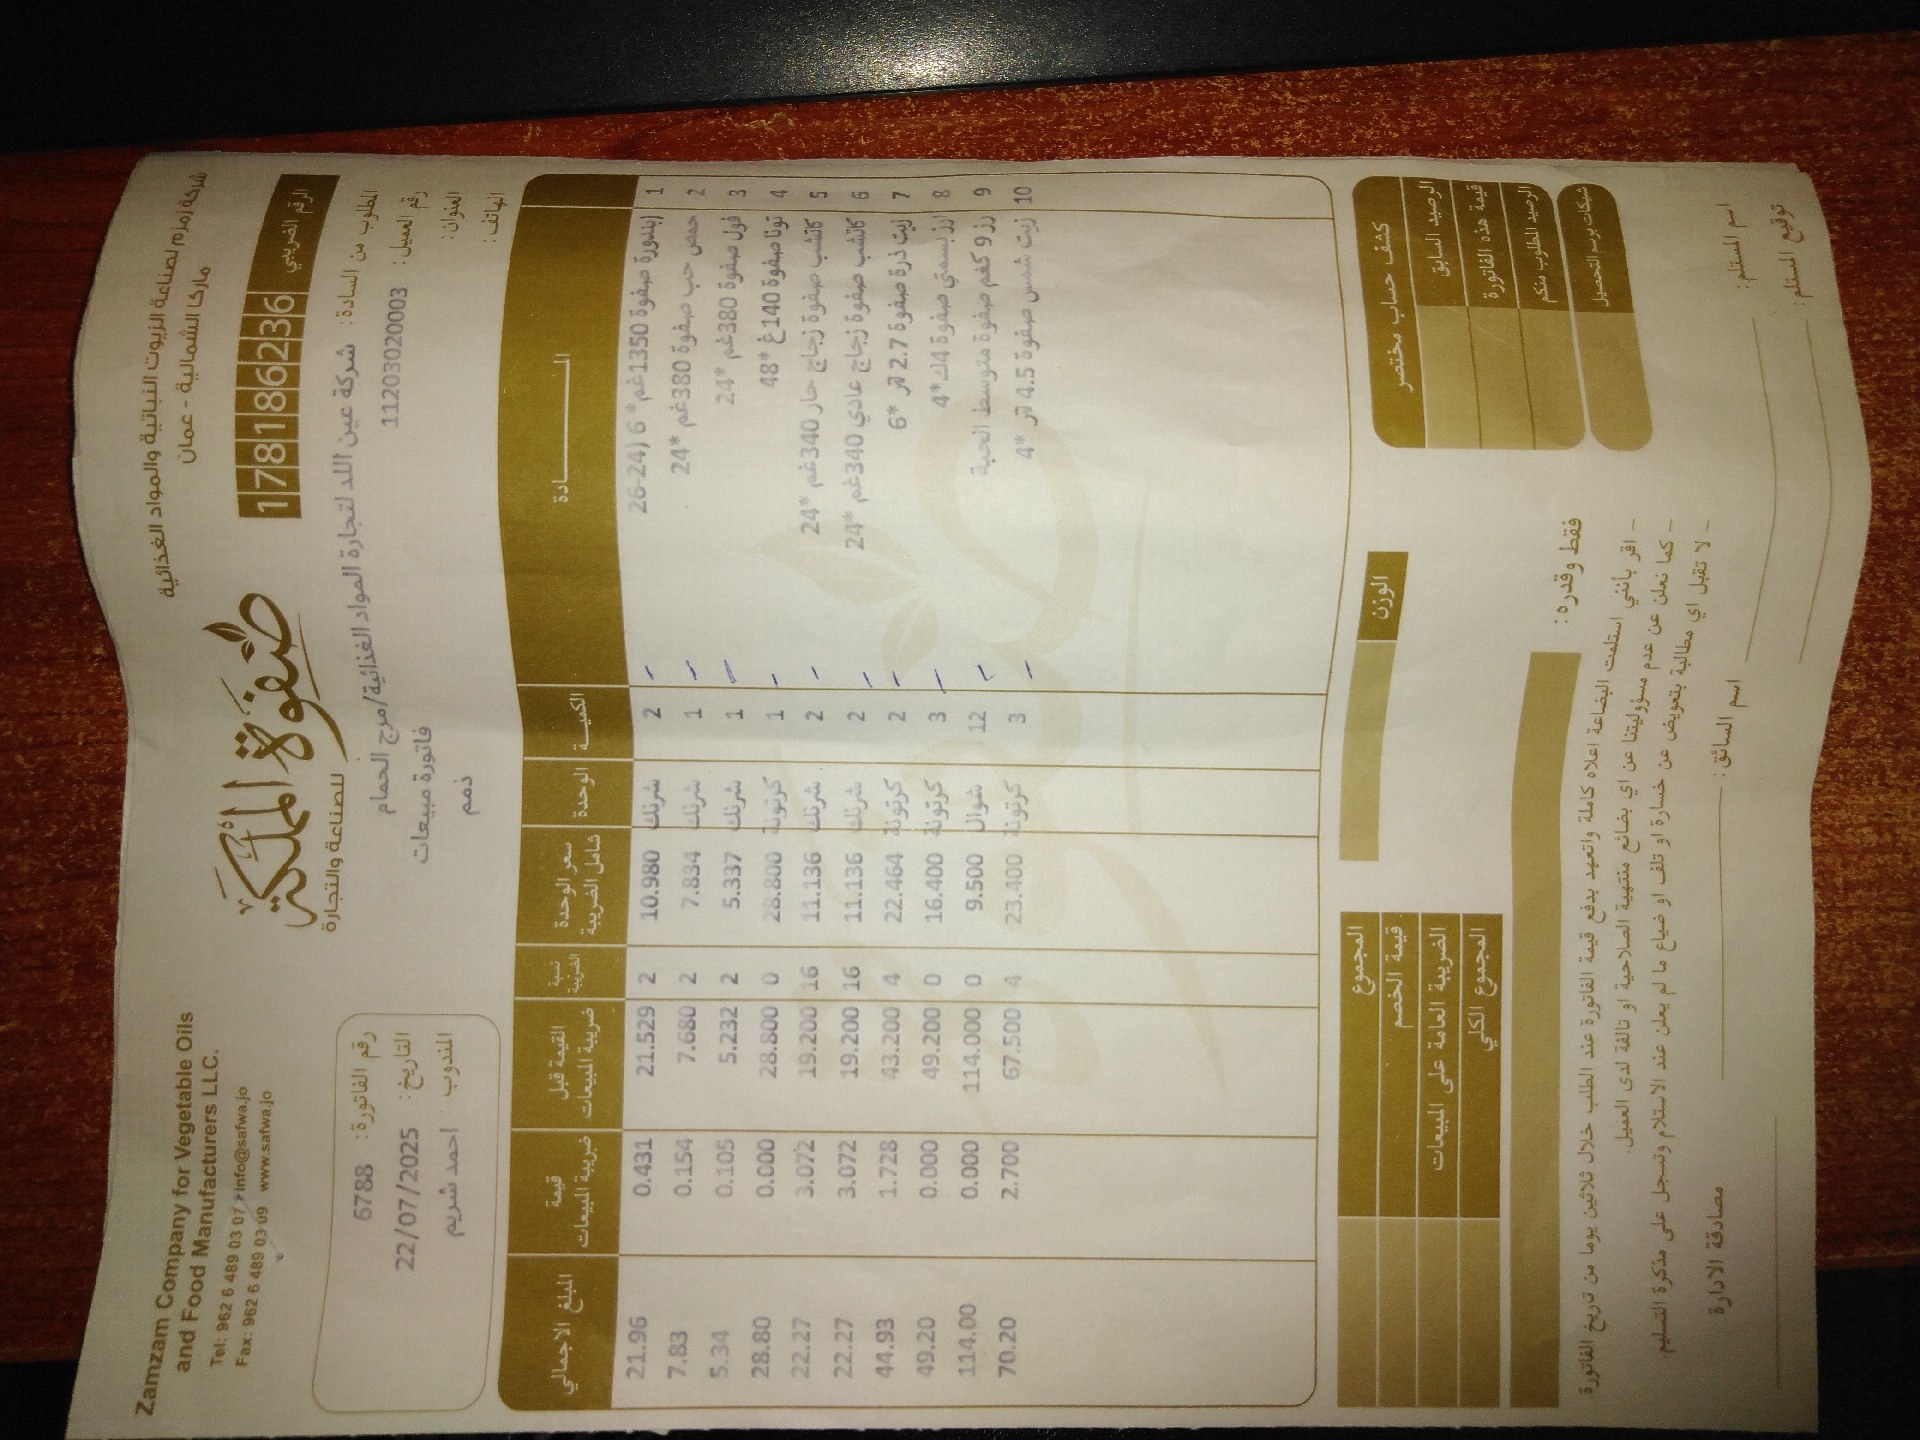 شركة زمزم لصناعة الزيوت النباتية والمواد الغذائية
ماركا الشمالية - عمان
الرقم الضريبي 178186236
صفوة المملكة
للصناعة والتجارة
Zamzam Company for Vegetable Oils
and Food Manufacturers LLC.
Tel: 962 6 489 03 07 info@safwa.jo
Fax: 962 6 489 03 09 www.safwa.jo
المطلوب من السادة: شركة عين اللد لتجارة المواد الغذائية/مرج الحمام
رقم العميل: 11203020003
العنوان:
الهاتف:
فاتورة مبيعات
ذمم
رقم الفاتورة: 6788
التاريخ: 22/07/2025
المندوب احمد شريم
المــــادة الكميــة الوحدة سعر الوحدة شامل الضريبة نسبة الضريبة القيمة قبل ضريبة المبيعات قيمة ضريبة المبيعات المبلغ الاجمالي
1 (بندورة صفوة 1350غم* 6 (26-24 2 شرنك 10.980 2 21.529 0.431 21.96
2 حمص حب صفوة 380غم *24 1 شرنك 7.834 2 7.680 0.154 7.83
3 فول صفوة 380غم *24 1 شرنك 5.337 2 5.232 0.105 5.34
4 تونا صفوة 140غ *48 1 كرتونة 28.800 0 28.800 0.000 28.80
5 كاتشب صفوة زجاج حار 340غم *24 2 شرنك 11.136 16 19.200 3.072 22.27
6 كاتشب صفوة زجاج عادي 340غم *24 2 شرنك 11.136 16 19.200 3.072 22.27
7 زيت ذرة صفوة 2.7 لتر *6 2 كرتونة 22.464 4 43.200 1.728 44.93
8 ارز بسمتي صفوة 4ك*4 3 كرتونة 16.400 0 49.200 0.000 49.20
9 رز 9 كغم صفوة متوسط الحبة 12 شوال 9.500 0 114.000 0.000 114.00
10 زيت شمس صفوة 4.5 لتر *4 3 كرتونة 23.400 4 67.500 2.700 70.20
كشف حساب مختصر
الرصيد السابق
قيمة هذه الفاتورة
الرصيد المطلوب منكم
شيكات برسم التحصيل
الوزن
المجموع
قيمة الخصم
الضريبة العامة على المبيعات
المجموع الكلي
فقط وقدره:
- اقر بأنني استلمت البضاعة اعلاه كاملة واتعهد بدفع قيمة الفاتورة عند الطلب خلال ثلاثين يوما من تاريخ الفاتورة
- كما نعلن عن عدم مسؤوليتنا عن اي بضائع منتهية الصلاحية او تالفة لدى العميل.
- لا تقبل اي مطالبة بتعويض عن خسارة او تلف او ضياع ما لم يعلن عند الاستلام وتسجل على مذكرة التسليم
اسم المستلم: اسم السائق: مصادقة الادارة
توقيع المستلم: